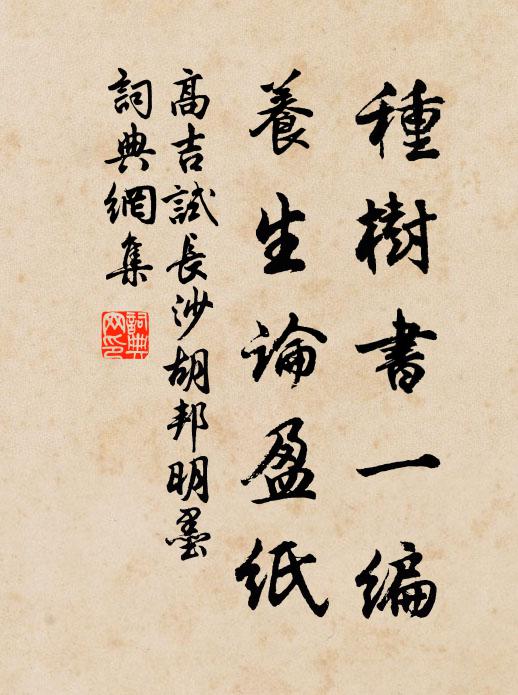 種樹書一編
養生論盈紙
高吉試長沙胡邦明墨
詞典網集
詞典網印